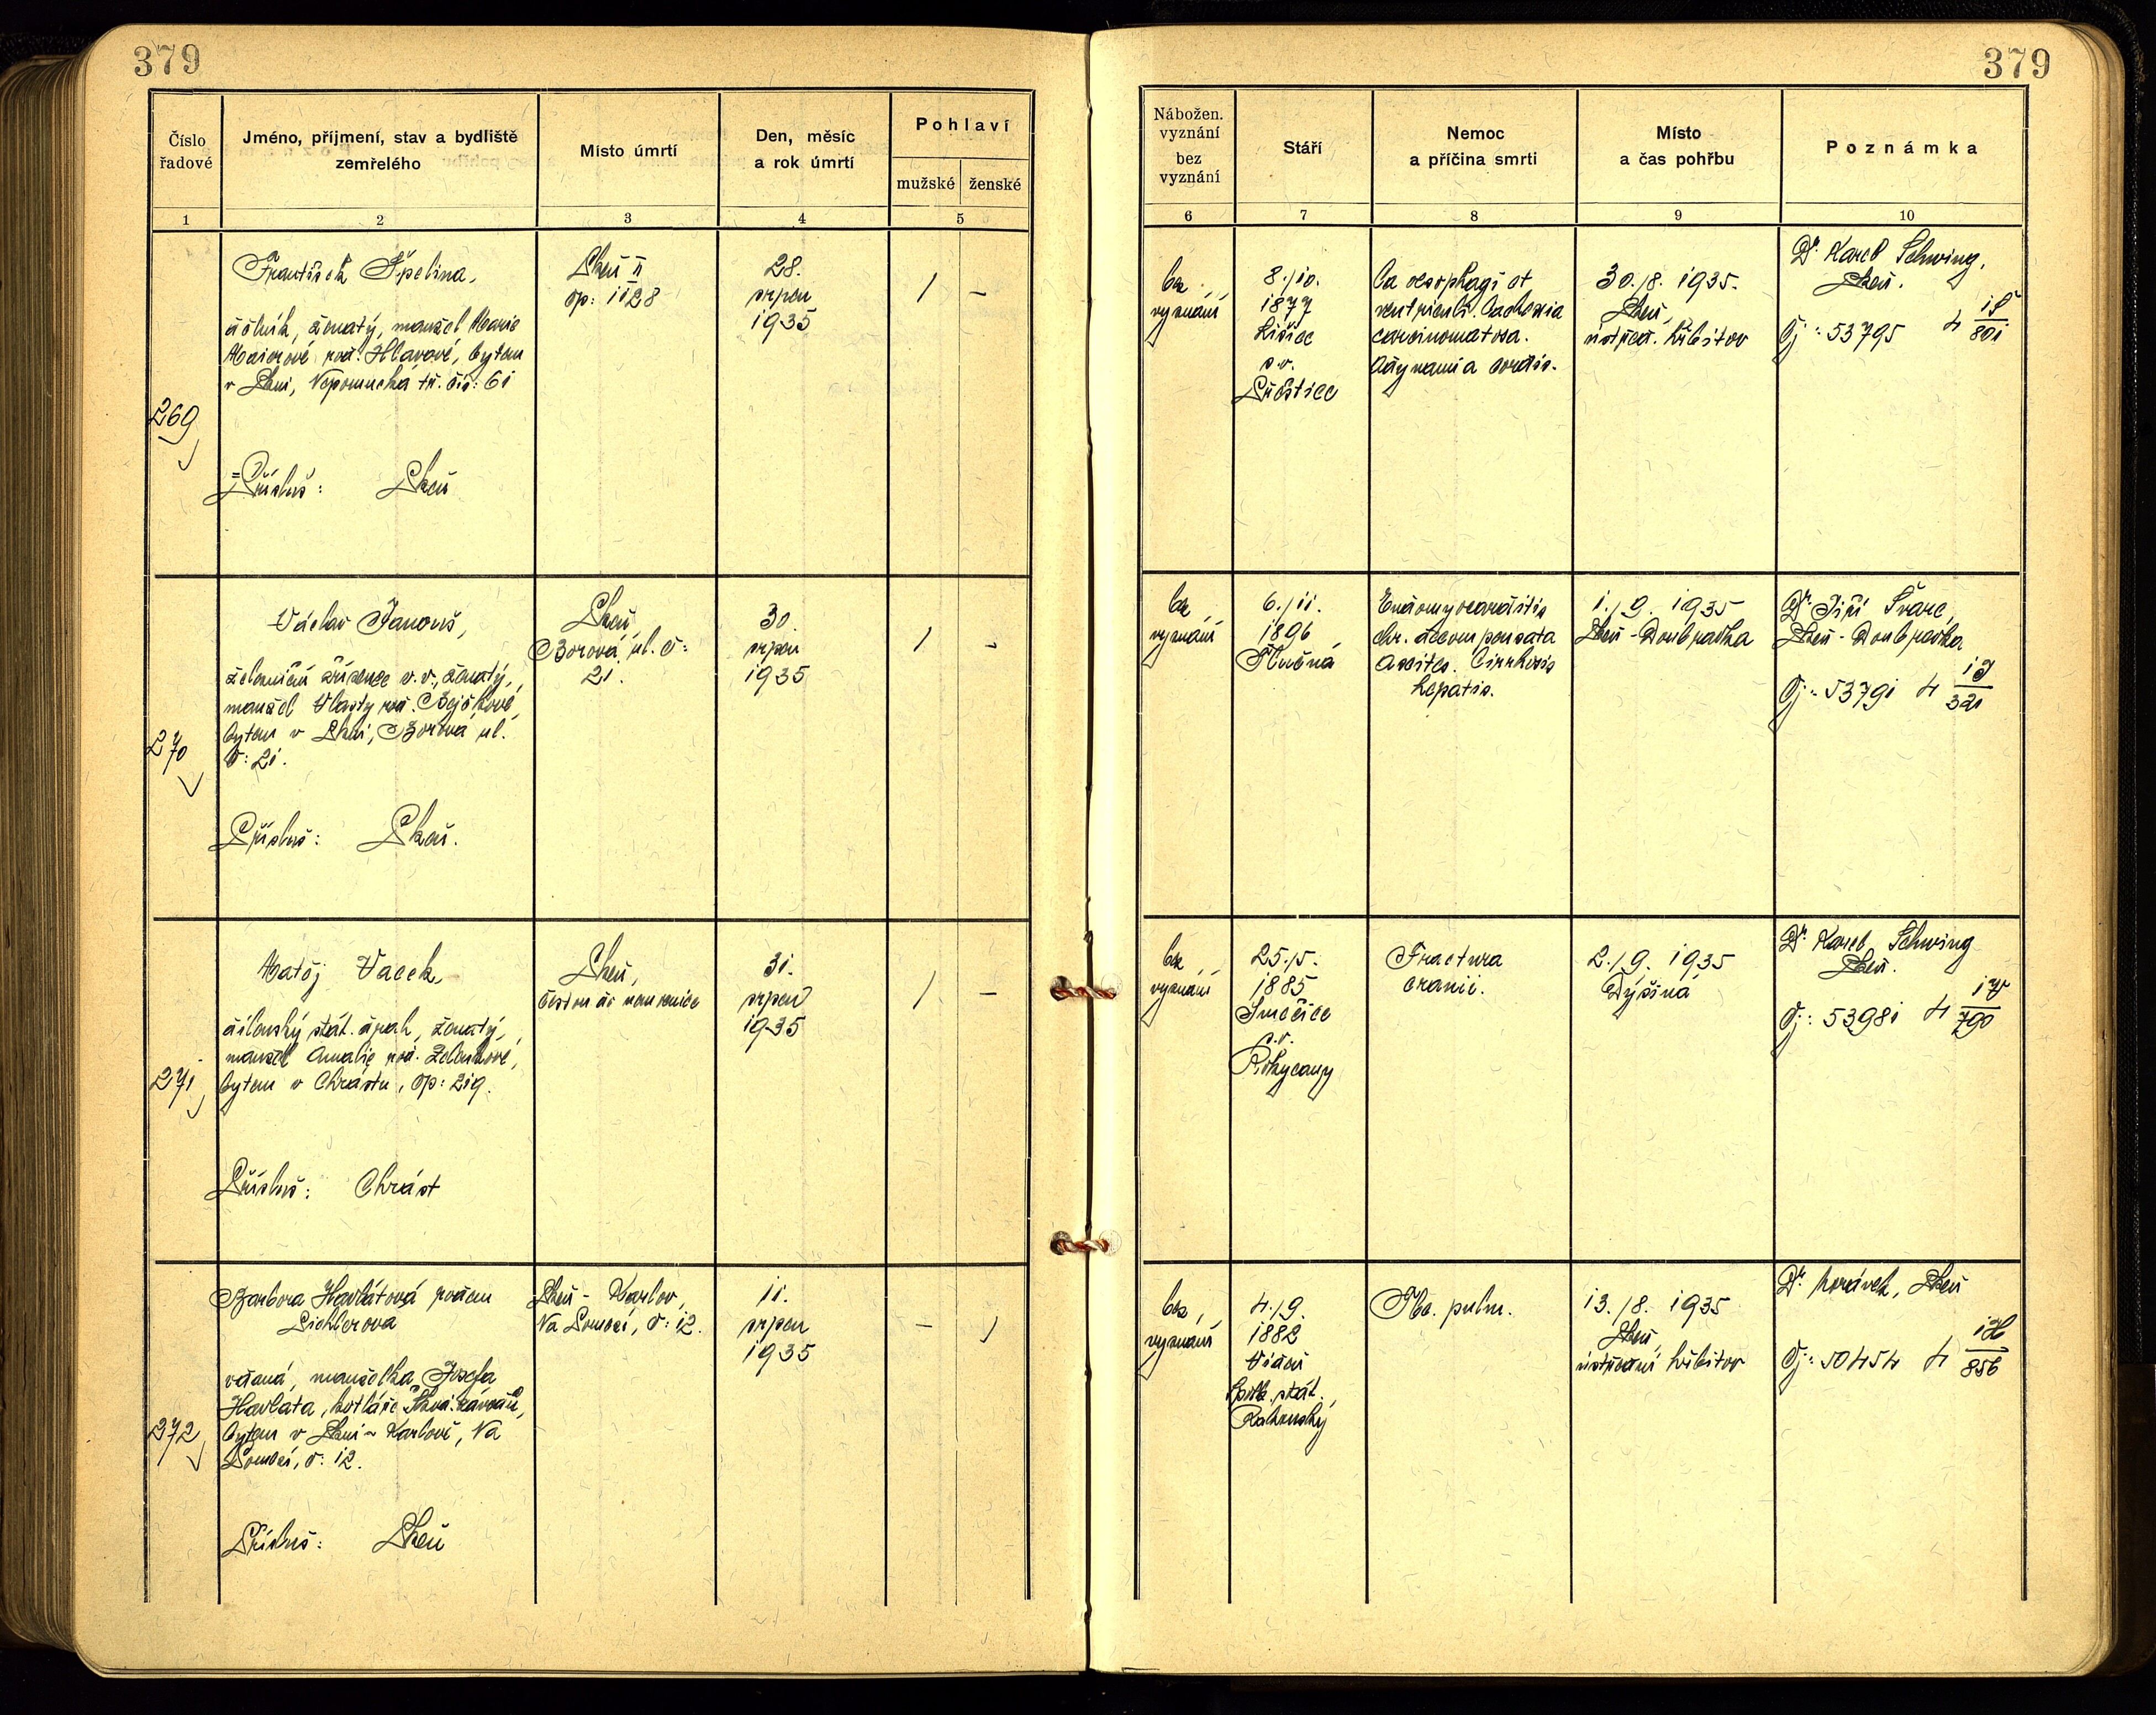 379
Číslo
řadové
Jméno, příjmení, stav a bydliště
zemřelého
Místo úmrtí
Den, měsíc
a rok úmrtí
Pohlaví
mužské
ženské
1
2
3
4
5
František Špelina,
dělník, ženatý, manžel Marie
Maierové roz. Hlavové, bytem
v Plzni, Nepomucká tř. čís: 61
269
Příslus: Plzeň
Plzeň II
čp: 1128
28.
srpen
1935
/
–
Václav Janouš,
železniční zřízenec v.v., ženatý,
manžel Vlasty roz.
bytem v Plzni, Borová ul.
č: 21.
270
Příslus: Plzeň.
Plzeň,
Borová ul. č:
21.
30.
srpen
1935
/
-
Matěj Vacek,
dílenský stát. drah, ženatý,
manžel Amalie roz. Zelenkové,
bytem v Chrástu, čp: 219.
271
Příslus: Chrást
Plzeň,
městská nemocnice
31.
srpen
1935
/
–
Barbora Havlátová rozen
Pichlerova
vdaná, manželka Josefa
Havlata, kotláře Škod. závodů,
bytem v Plzni - Karlově, Na
Pomezí, č: 12.
272
Příslus: Plzeň
Plzeň - Karlov,
Na Pomezí, č: 12.
11.
srpen
1935
–
/
379
Nábožen.
vyznání
bez
vyznání
Stáří
Nemoc
a příčina smrti
Místo
a čas pohřbu
Poznámka
6
7
8
9
10
bez
vyznání
8./10.
1877
Lišice
p.v.
Přeštice
Ca oesophagi et
ventriculi. Cachexia
carcinomatosa.
Adynamia cordis.
30./8. 1935.
Plzeň,
ústřed. hřbitov
Dr. Karel Schwing,
Plzeň.
Čj: 53795 4 1Š/801
bez
vyznání
6./11.
1896
Tlučná
Endomyocarditis
chr. decompensata
Ascites. Cirrhosis
hepatis.
1./9. 1935
Plzeň - Doubravka
Dr. Jiří Švarc,
Plzeň - Doubravka
Čj: 53791 4 1J/321
bez
vyznání
25./5.
1885
Smědčice
p.v.
Rokycany
Fractura
cranii.
2./9. 1935
Dýšiná
Dr. Karel Schwing
Plzeň.
Čj: 53981 4 1V/790
bez
vyznání
4./9.
1882
Vídeň
spolk. stát.
Rakouský
Tbc. pulm.
13./8. 1935
Plzeň,
ústřední hřbitov
Dr. Morávek, Plzeň
Čj: 50454 4 1H/856